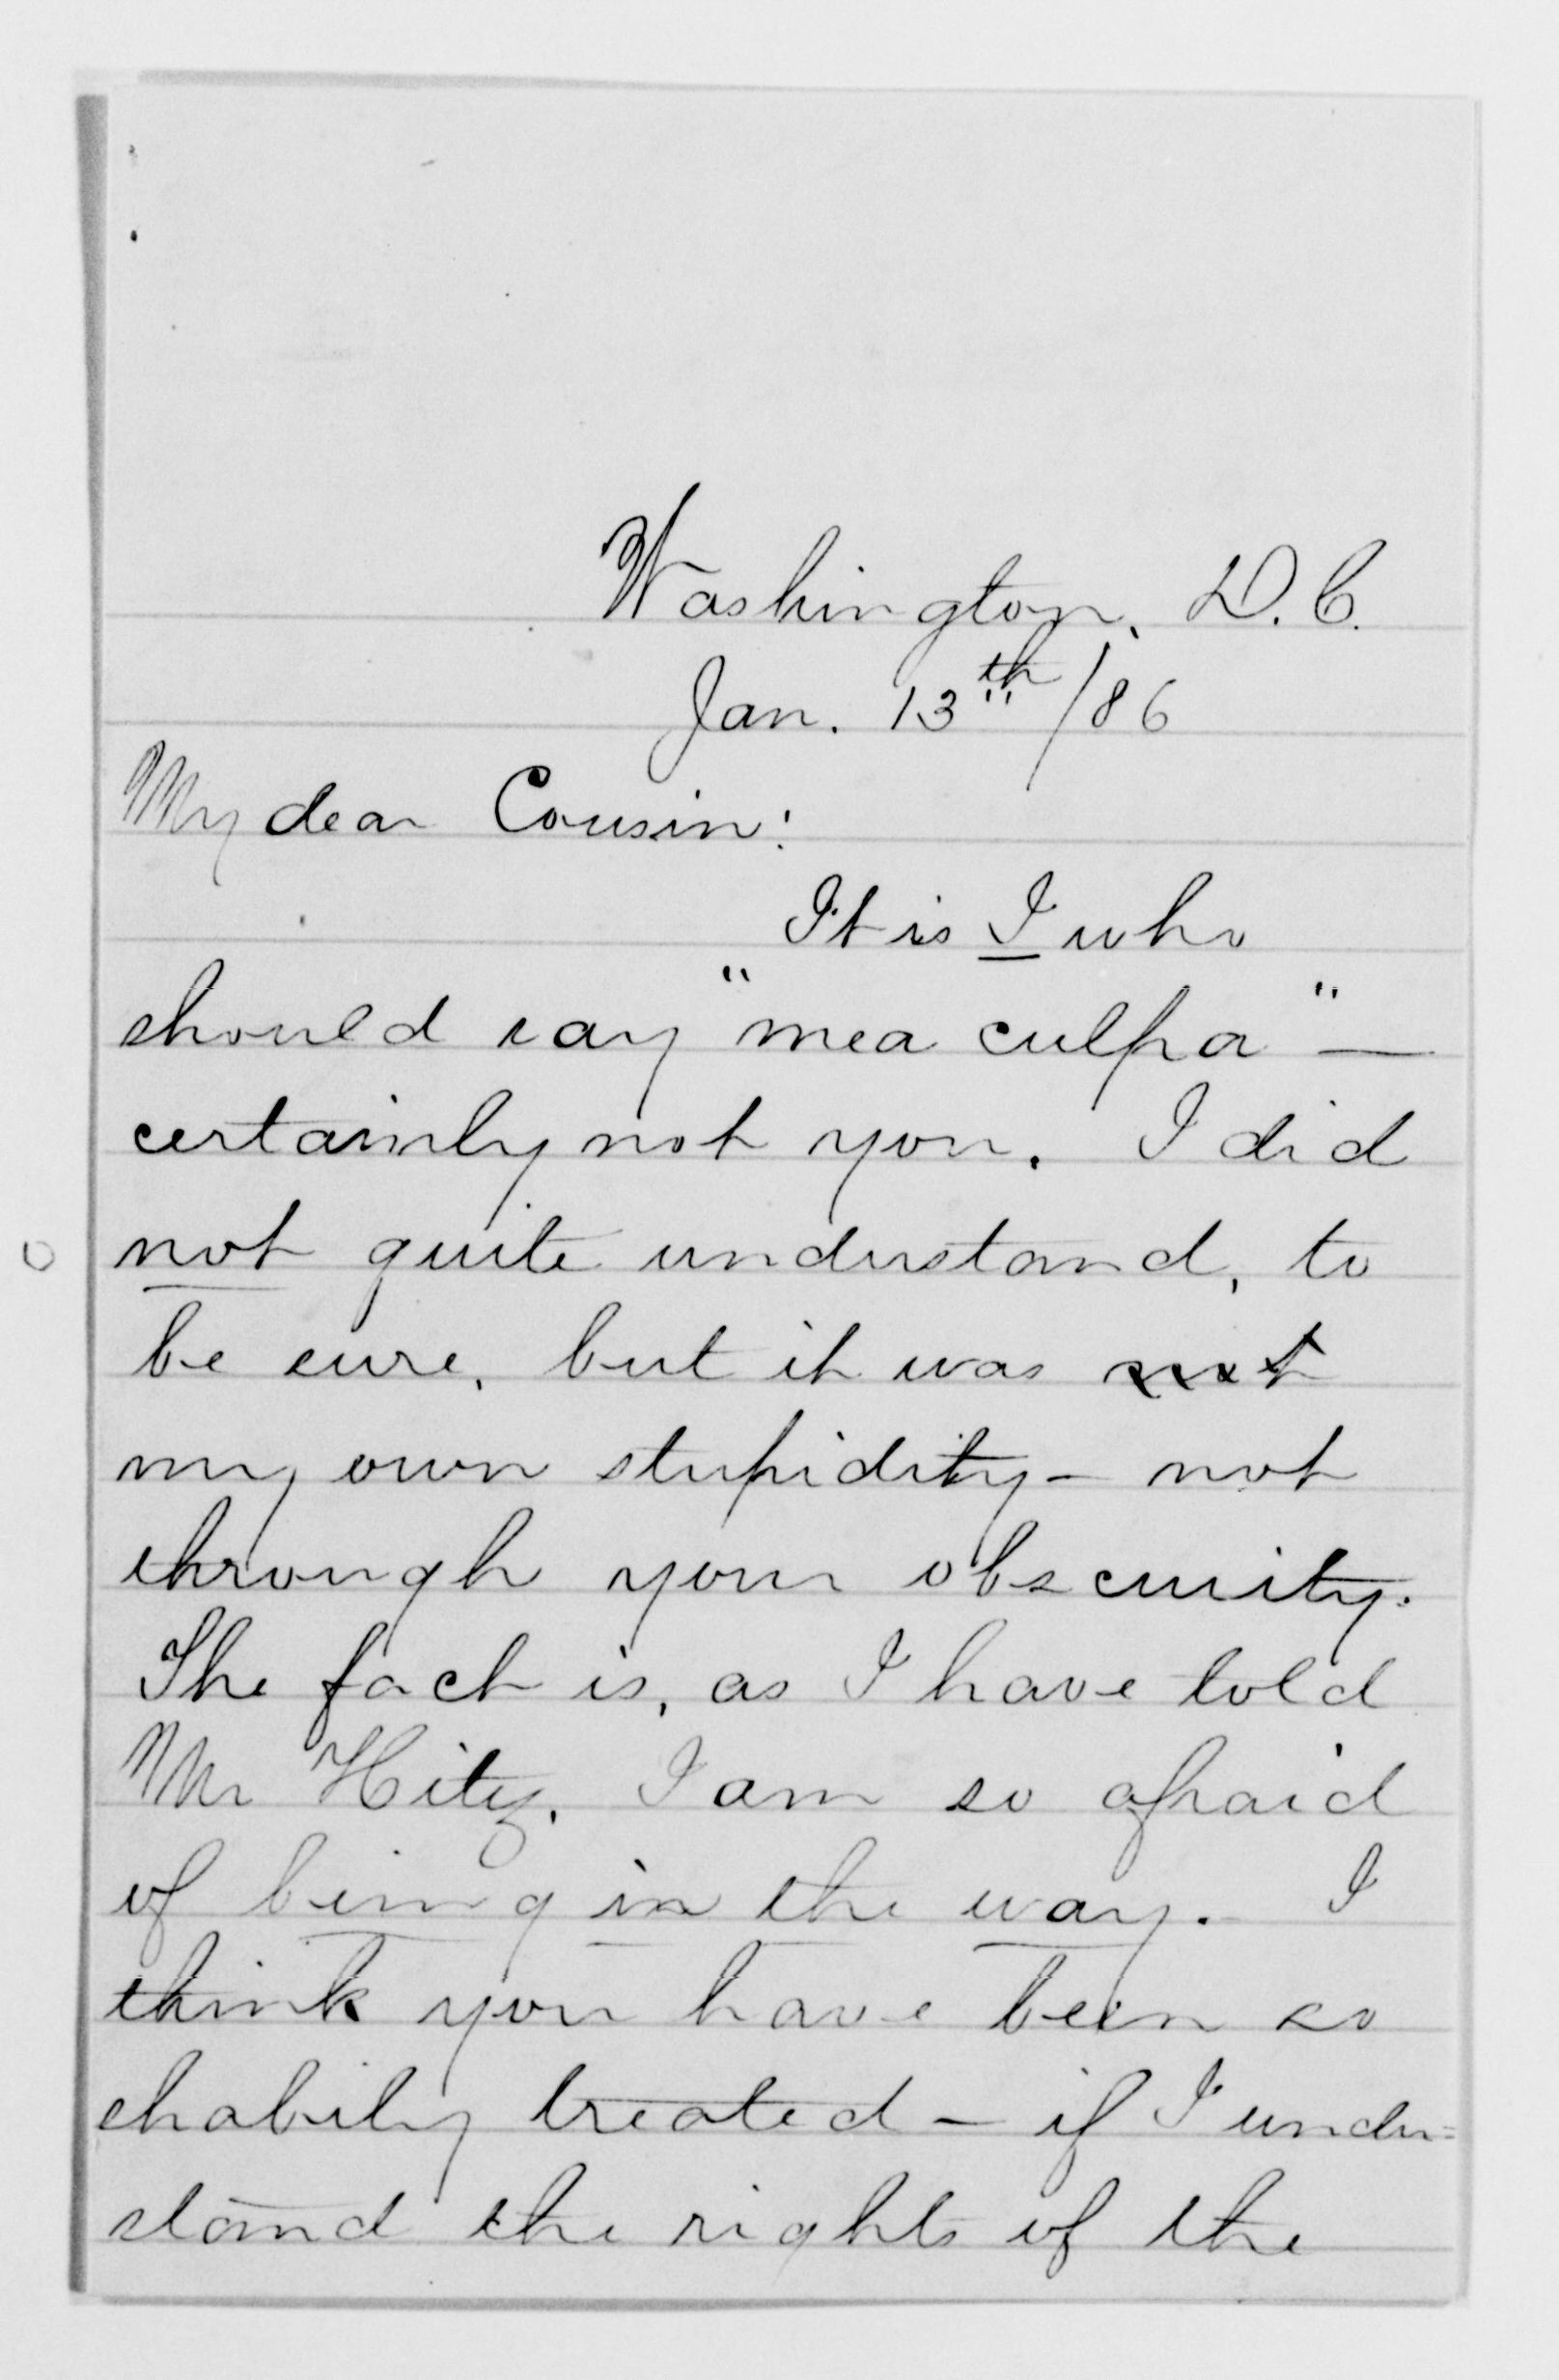 Washington, D.C.
Jan. 13th/86
My dear Cousin:
It is I who
should say "mea culpa" —
certainly not you. I did
not quite understand, to
be sure, but it was not
my own stupidity — not
through your obscurity.
The fact is, as I have told
Mr Hitz, I am so afraid
of being in the way. I
think you have been so
shabily treated — if I under=
stand the rights of the